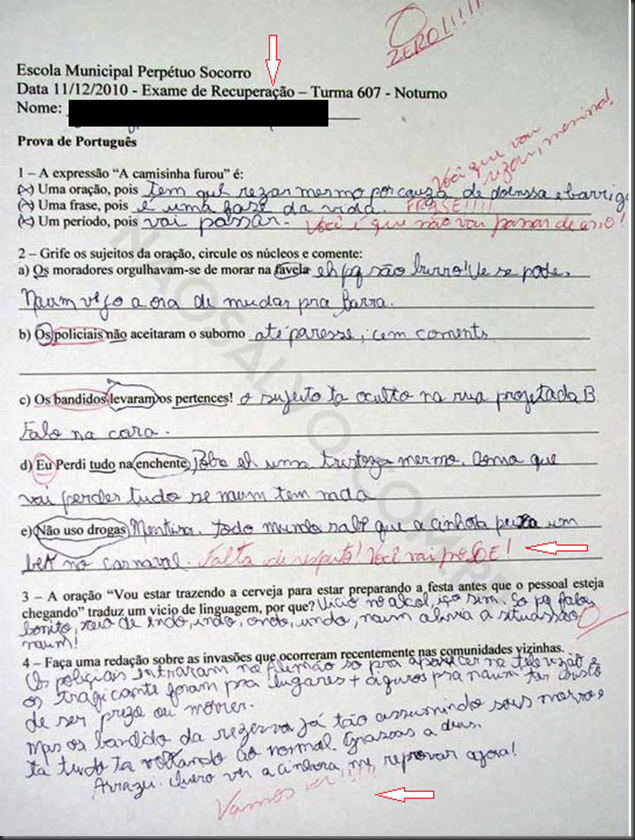 ZERO!!!!!
Escola Municipal Perpétuo Socorro
Data 11/12/2010 - Exame de Recuperação – Turma 607 - Noturno
Nome:
Prova de Português
Você que vai
rezar, menina!
1 – A expressão “A camisinha furou” é:
(x) Uma oração, pois tem que rezar mermo por cauza de doenssa e barriga
(x) Uma frase, pois é uma faze da vida. FRASE!!!!
(x) Um período, pois vai passar. Você é que não vai passar de ano!
2 – Grife os sujeitos da oração, circule os núcleos e comente:
a) Os moradores orgulhavam-se de morar na favela eh pq são burro! Ve se pode.
Naum vejo a ora de mudar pra barra.
b) Os policiais não aceitaram o suborno até paresse, cem coments
c) Os bandidos levaram os pertences! o sujeito ta oculto na rua projetada B.
Falo na cara.
d) Eu Perdi tudo na enchente. Poba eh uma tristeza mermo. Como que
vai perder tudo se num tem nada
e) Não uso drogas Mentira. todo mundo sabe que a cinhora um
bek no carnaval. Falta de respeito! Você vai pro SOE!
3 – A oração “Vou estar trazendo a cerveja para estar preparando a festa antes que o pessoal esteja
chegando” traduz um vicio de linguagem, por que? Vício no alcol, iço sim. So pq falou
bonito, xeio de endo, indo, ondo, undo, naum alivia a situassão
naum!
4 – Faça uma redação sobre as invasões que ocorreram recentemente nas comunidades vizinhas.
Os policiais intraram no Alemão so pra aparecer na televizão e
os traficante foram pra lugares + ceguros pra naum ter
de ser prezo ou morrer.
Mas os bandido da rezerva já tão assumindo seus morro e
ta tudo ta voltando ao normal. Grassas a deus.
Arrazei. Quero ver a cinhora me reprovar agora!
Vamos ver!!!!!
NAOSALVO.COM.BR